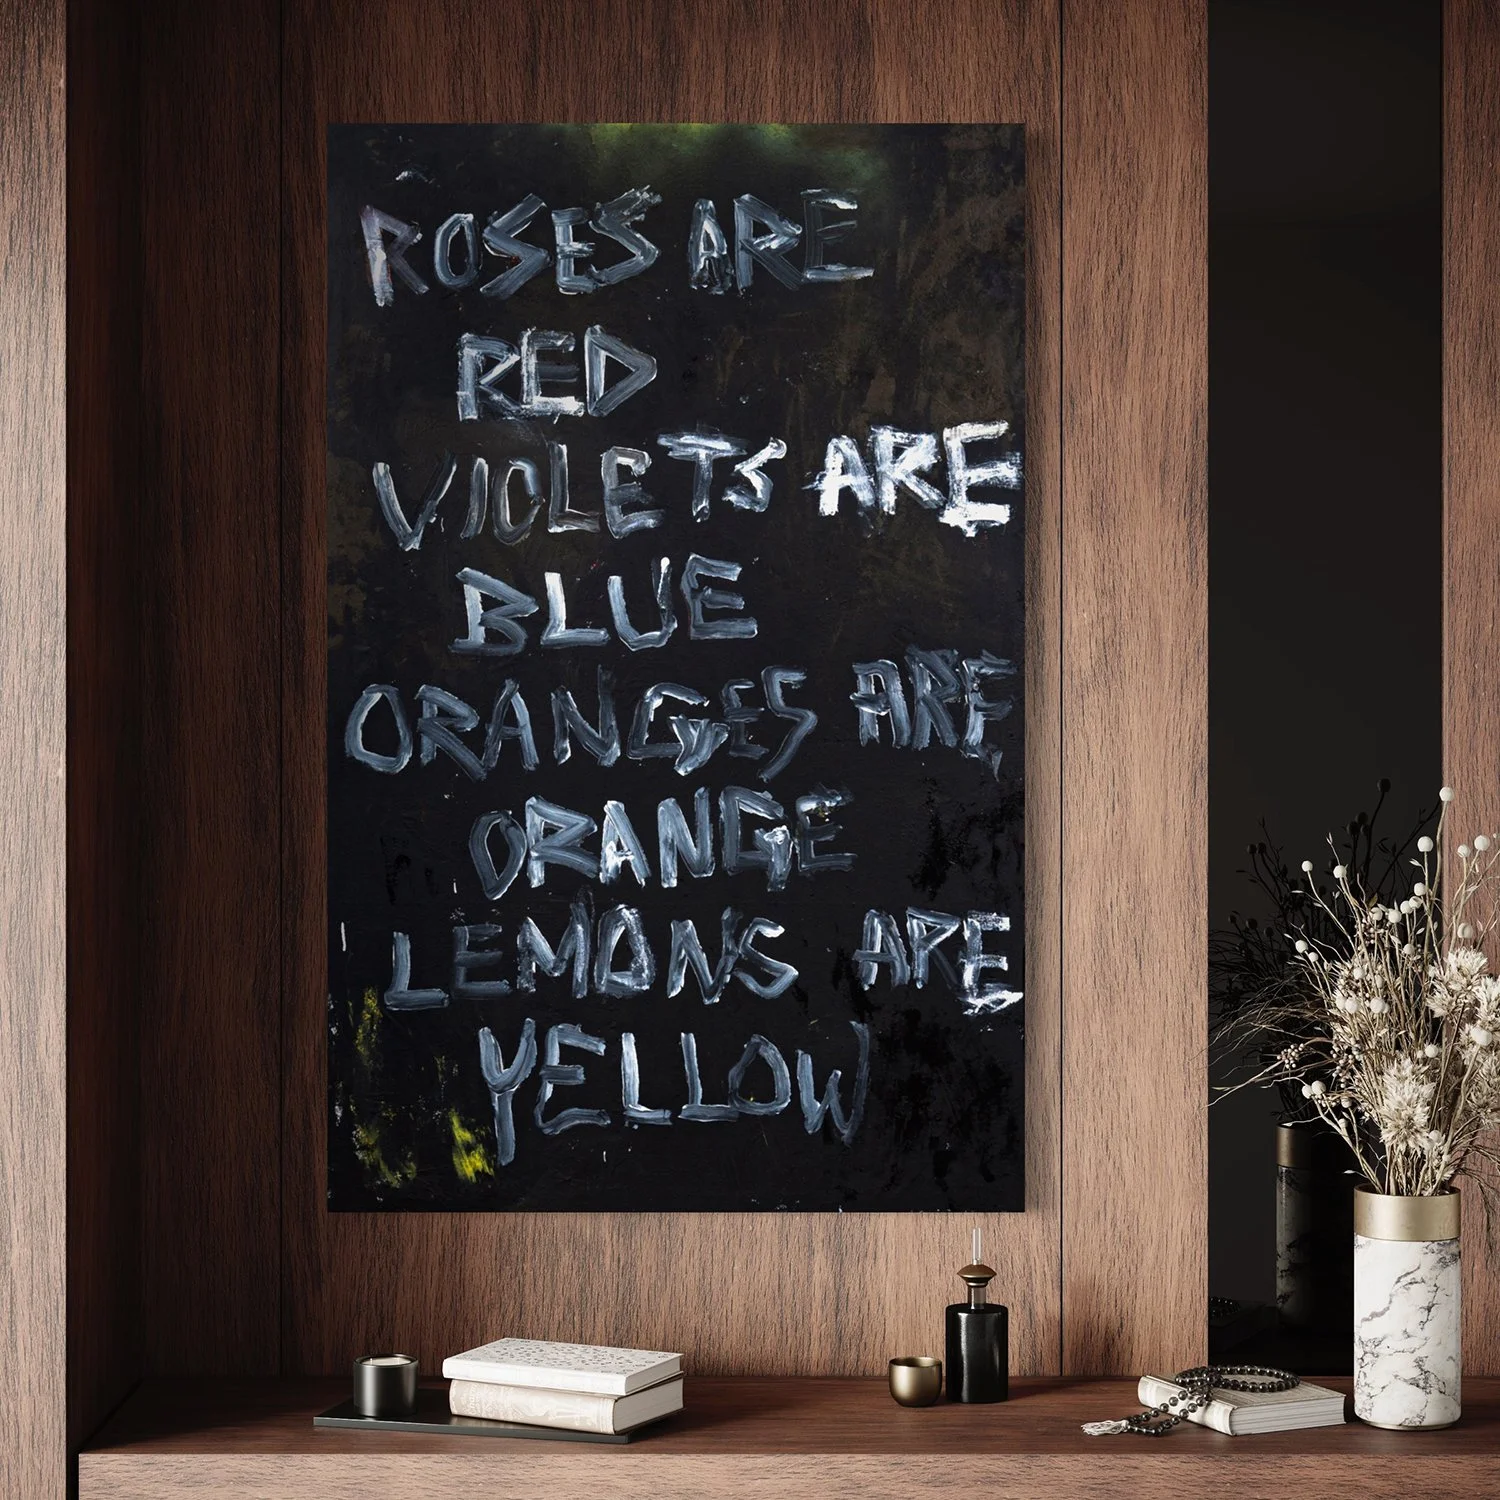 ROSES ARE
RED
VIOLETS ARE
BLUE
ORANGES ARE
ORANGE
LEMONS ARE
YELLOW